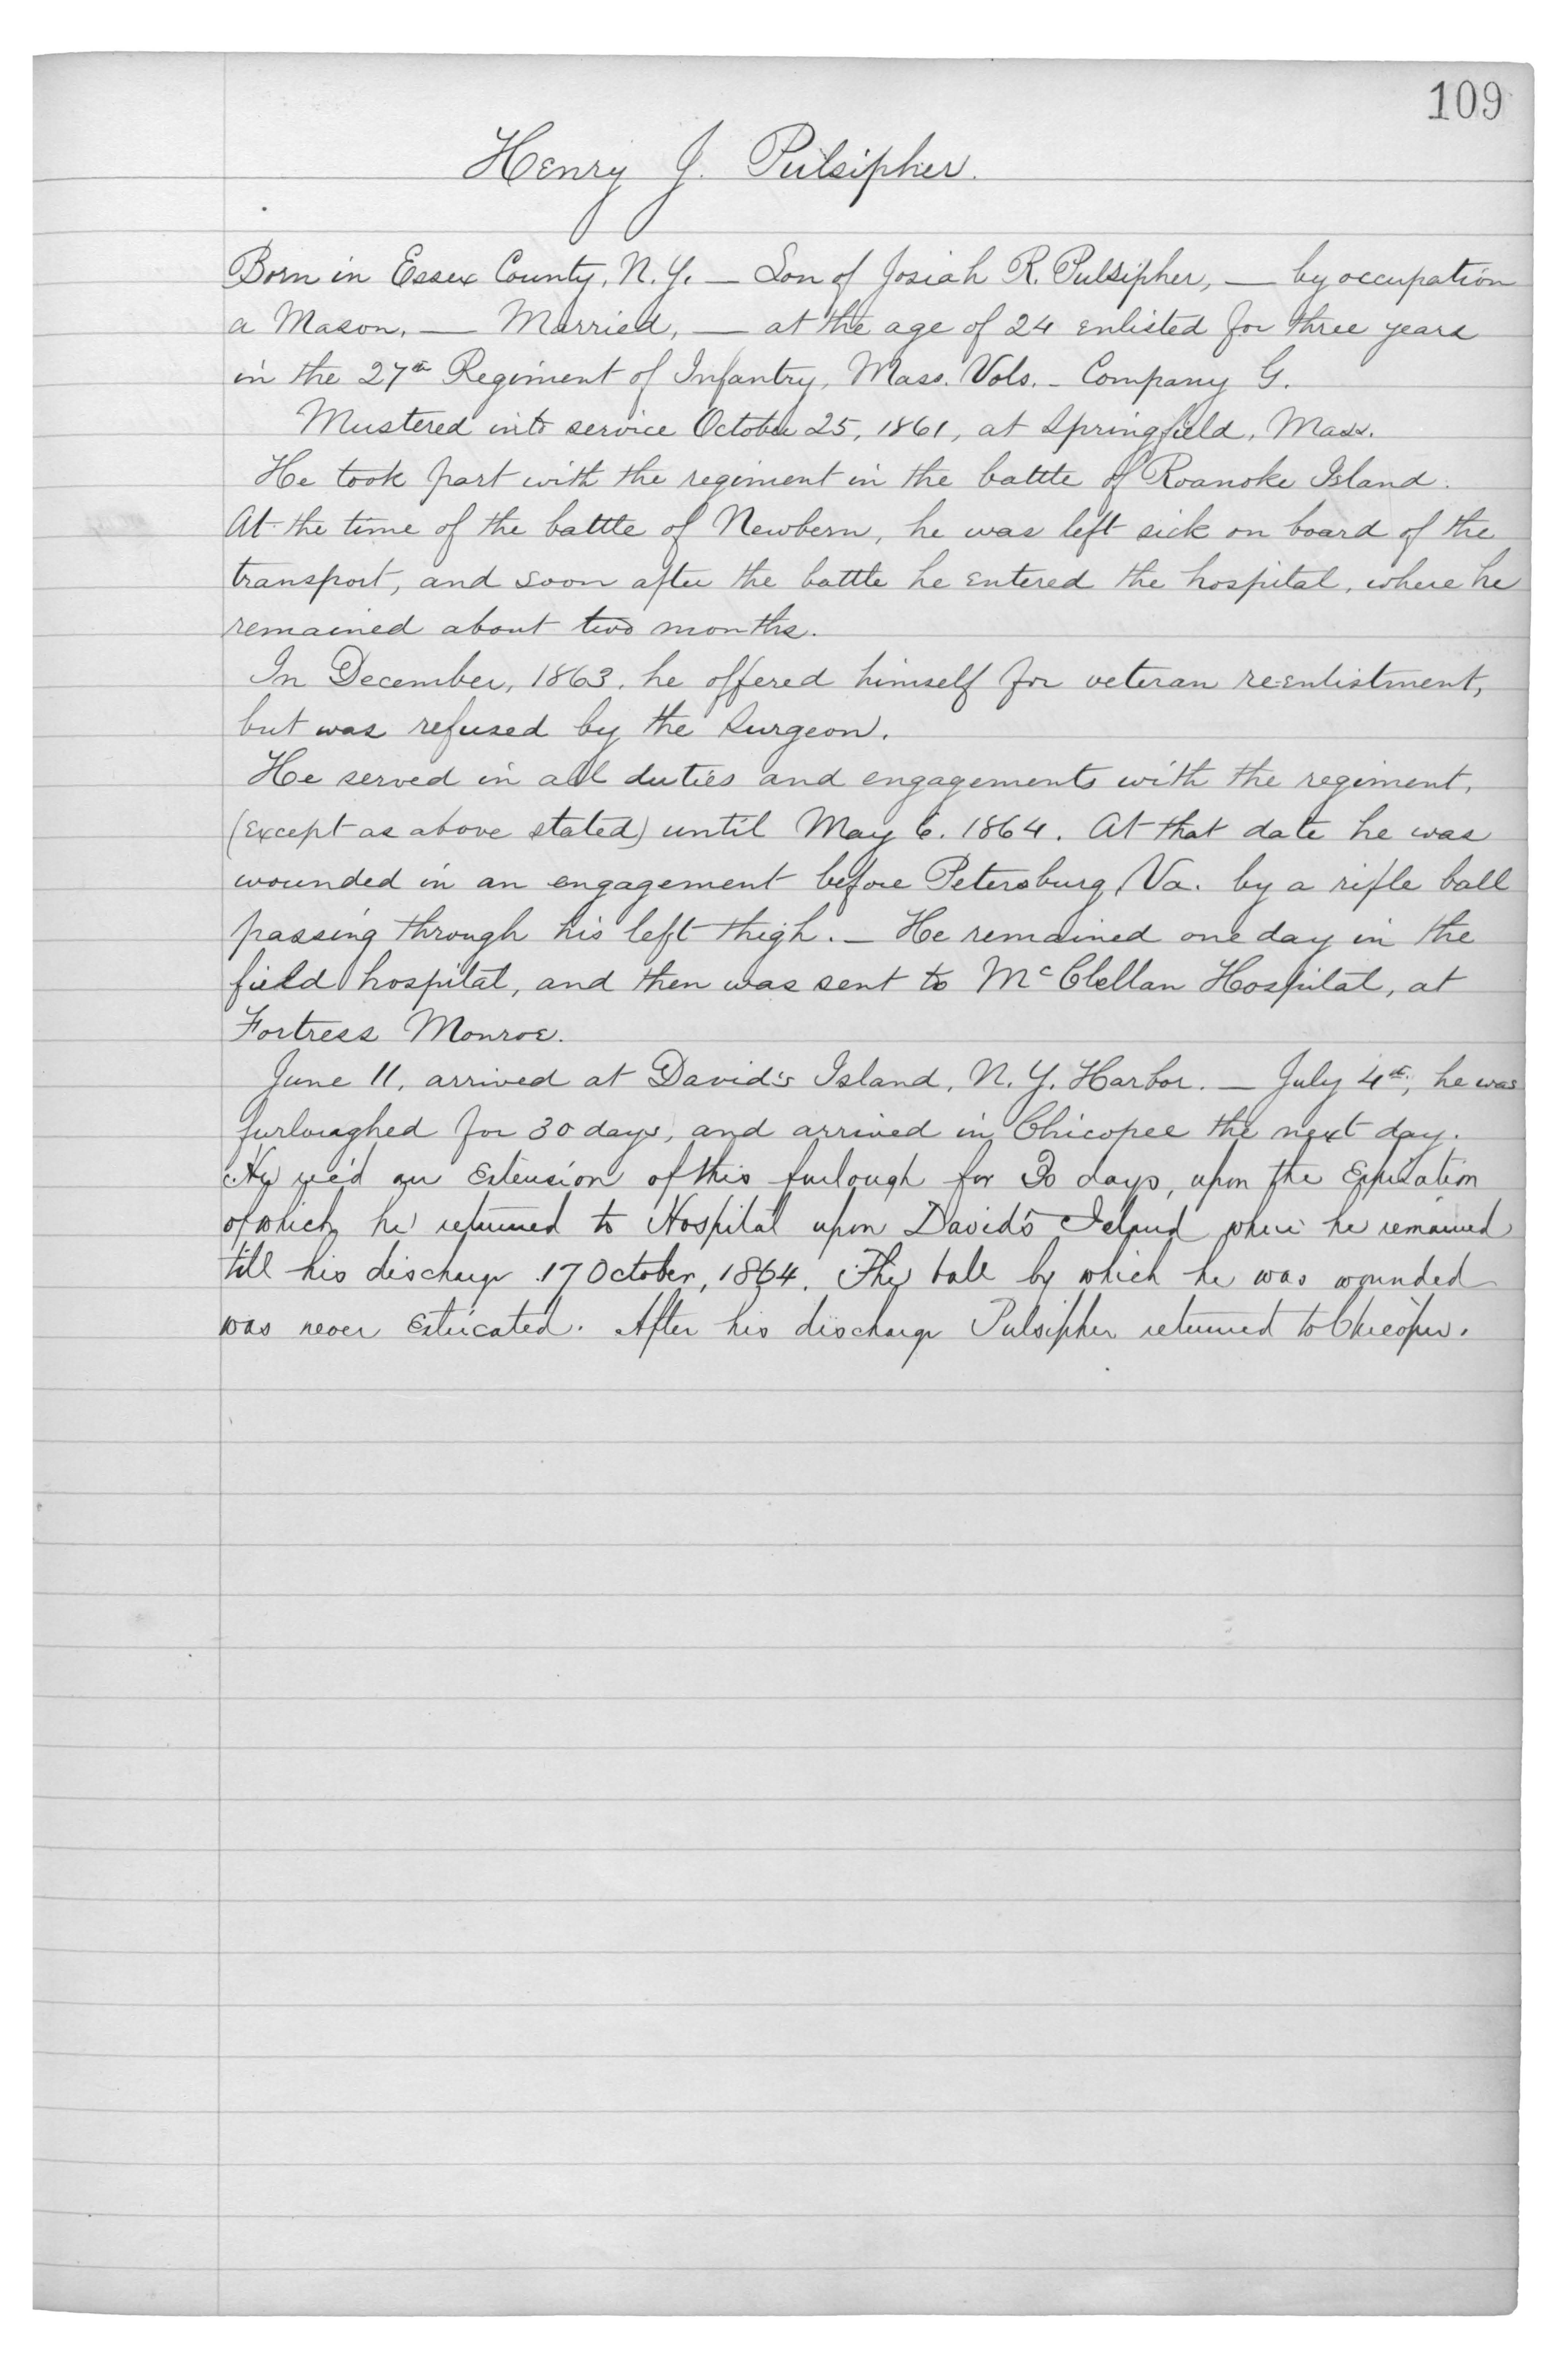 109
Henry J. Pulsipher.
Born in Essex County, N.Y. — Son of Josiah R. Pulsipher, — by occupation
a Mason, — Married, — at the age of 24 enlisted for three years
in the 27th Regiment of Infantry, Mass. Vols. - Company G.
Mustered into service October 25, 1861, at Springfield, Mass.
He took part with the regiment in the battle of Roanoke Island.
At the time of the battle of Newbern, he was left sick on board of the
transport, and soon after the battle he entered the hospital, where he
remained about two months.
In December, 1863, he offered himself for veteran re-enlistment,
but was refused by the Surgeon.
He served in all duties and engagements with the regiment,
(except as above stated) until May 6. 1864. At that date he was
wounded in an engagement before Petersburg, Va. by a rifle ball
passing through his left thigh. — He remained one day in the
field hospital, and then was sent to McClellan Hospital, at
Fortress Monroe.
June 11, arrived at David's Island, N.Y. Harbor. — July 4th, he was
furloughed for 30 days, and arrived in Chicopee the next day.
He rec'd an Extension of this furlough for 30 days, upon the Expiration
of which he returned to Hospital upon David's Island where he remained
till his discharge 17 October, 1864. The ball by which he was wounded
was never Extricated. After his discharge Pulsipher returned to Chicopee.